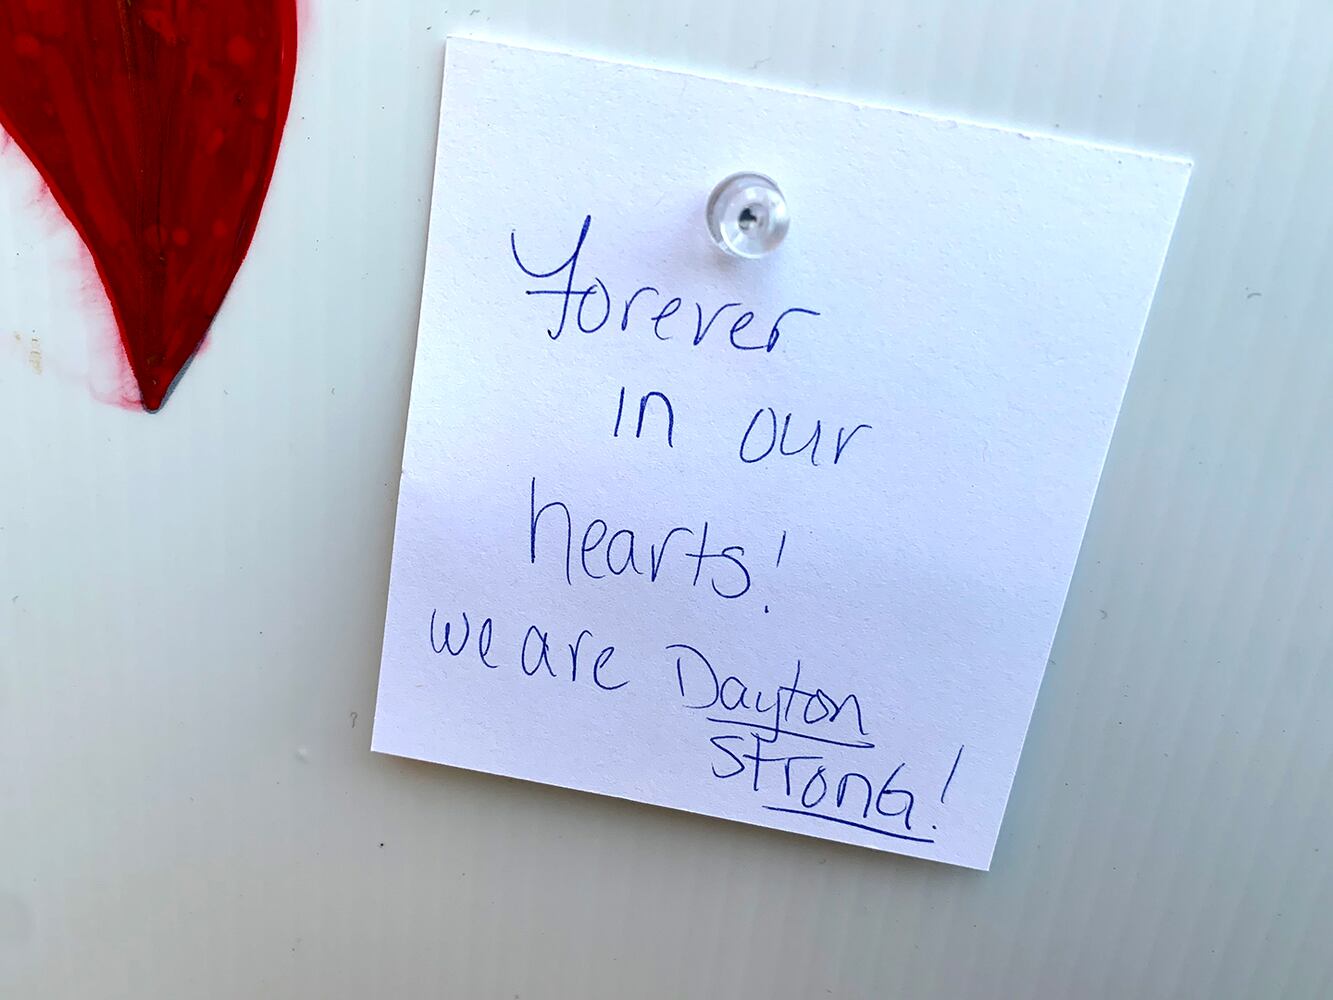 Forever
in our
hearts!
we are Dayton
strong!